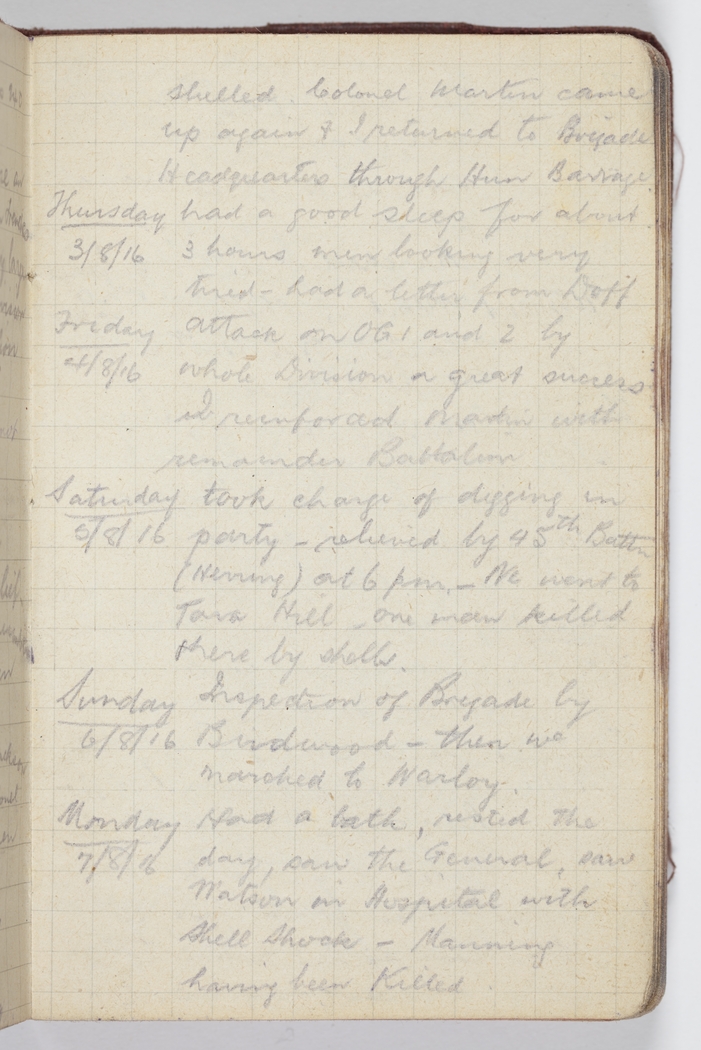 shelled. Colonel Martin came
up again & I returned to Brigade
Headquarters through Hun Barrage.
Thursday had a good sleep for about
3/8/16 3 hours men looking very
tired - had a letter from Doff
Friday attack on OG 1 and 2 by
4/8/16 whole Division a great success
I reinforced Martin with
remainder Battalion
Saturday took charge of digging in
5/8/16 party - relieved by 45th Battn
(Herring) at 6 pm. - We went to
Tara Hill one man killed
there by shells.
Sunday Inspection of Brigade by
6/8/16 Birdwood - then we
marched to Warloy.
Monday Had a bath, rested the
7/8/16 day, saw the General, saw
Watson in Hospital with
Shell Shock - Manning
having been Killed